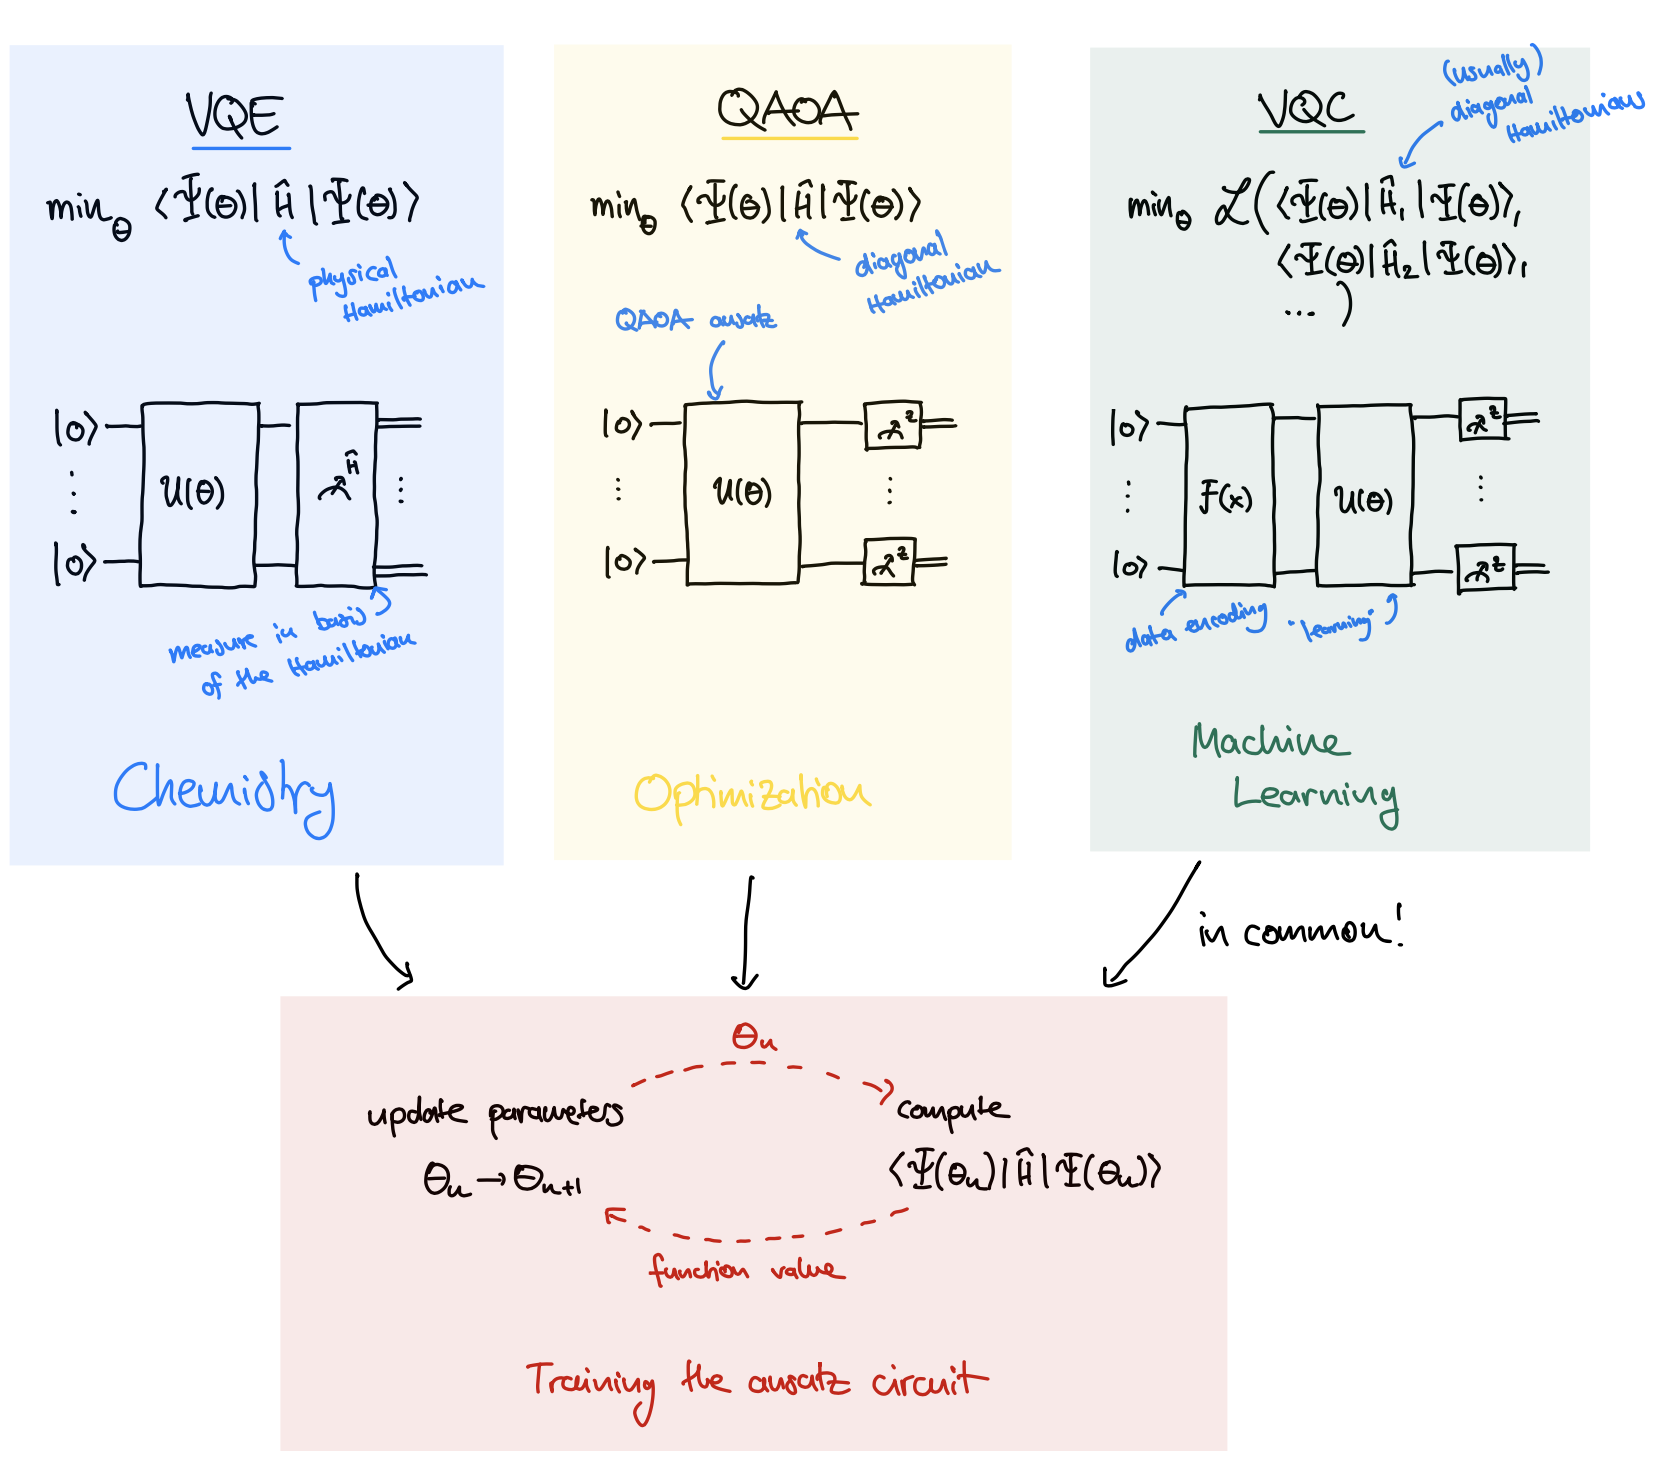 VQE
min_θ ⟨Ψ(θ)|Ĥ|Ψ(θ)⟩
physical
Hamiltonian
|0⟩
⋮
|0⟩
U(θ)
Ĥ
⋮
measure in basis
of the Hamiltonian
Chemistry
QAOA
min_θ ⟨Ψ(θ)|Ĥ|Ψ(θ)⟩
diagonal
Hamiltonian
QAOA ansatz
|0⟩
⋮
|0⟩
U(θ)
z
⋮
z
Optimization
VQC
(usually)
diagonal
Hamiltonians
min_θ ℒ(⟨Ψ(θ)|Ĥ₁|Ψ(θ)⟩,
⟨Ψ(θ)|Ĥ₂|Ψ(θ)⟩,
...)
|0⟩
⋮
|0⟩
F(x)
U(θ)
z
⋮
z
data encoding
"learning"
Machine
Learning
in common!
θₙ
update parameters
θₙ → θₙ₊₁
compute
⟨Ψ(θₙ)|Ĥ|Ψ(θₙ)⟩
function value
Training the ansatz circuit